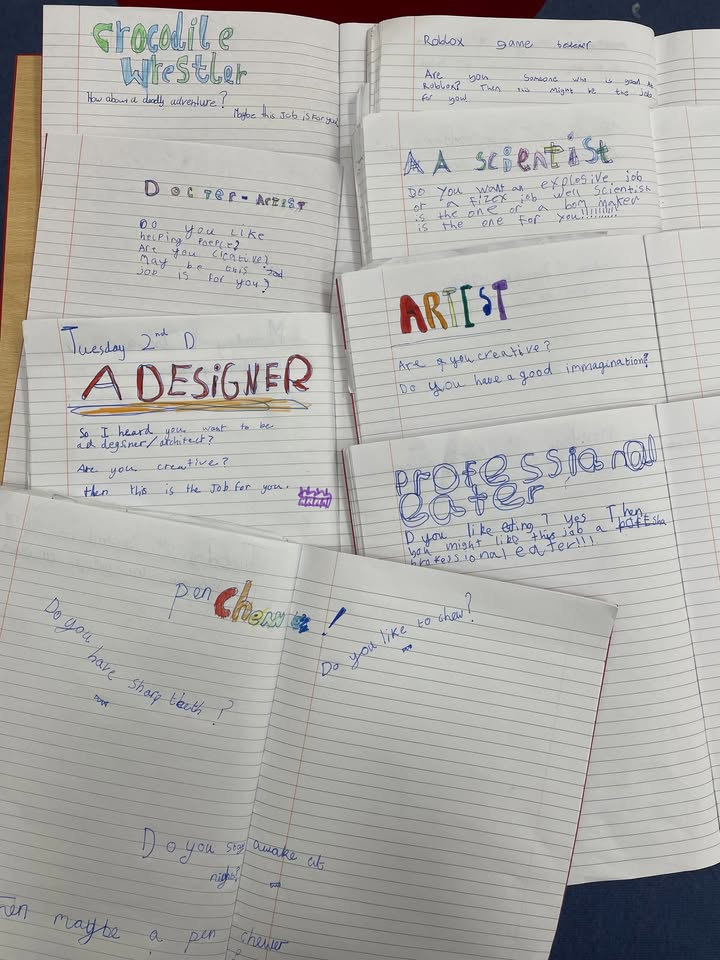 Crocodile
Wrestler
How about a deadly adventure?
Maybe this Job is for you
Roblox game
Are you Someone who is good At
Roblox? Then this might be the job
for you!
Docter-Artist
Do you like
helping people?
Are you creative?
May be this Job
job is for you?
A A scientist
Do you want an explosive job
or a fizex job well scientist
is the one or a bom maker
is the one for you!!!!!!!!!
Tuesday 2nd D
A DESIGNER
So I heard you want to be
ad degsiner/architect?
Are you creative?
then this is the Job for you.
ARTIST
Are you creative?
Do you have a good immagination?
professional
eater
D you like eting? yes Then
you might like this job a
professional eater!!!
pen Chewer!
Do you have sharp teeth?
Do you like to chew?
Do you stay awake at
night?
Then maybe a pen chewer